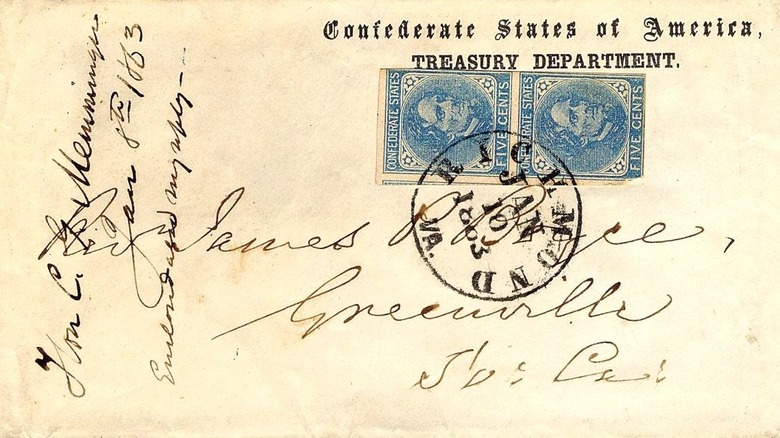 Confederate States of America,
TREASURY DEPARTMENT.
CONFEDERATE STATES
FIVE CENTS
CONFEDERATE STATES
FIVE CENTS
RICHMOND
VA.
JAN
10
1863
James P Boyce,
Greenville
So: Ca:
Hon C. G. Memminger
Jan 8th 1863
my reply—